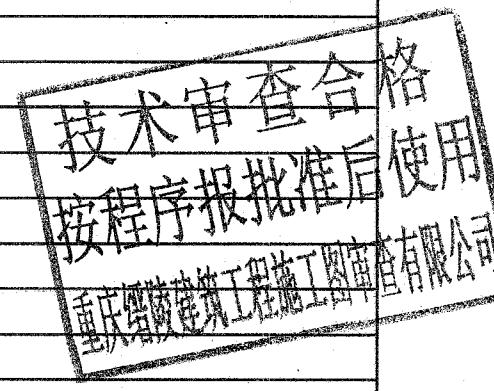 技术审查合格
按程序报批准后使用
重庆缙陵建筑工程施工图审查有限公司